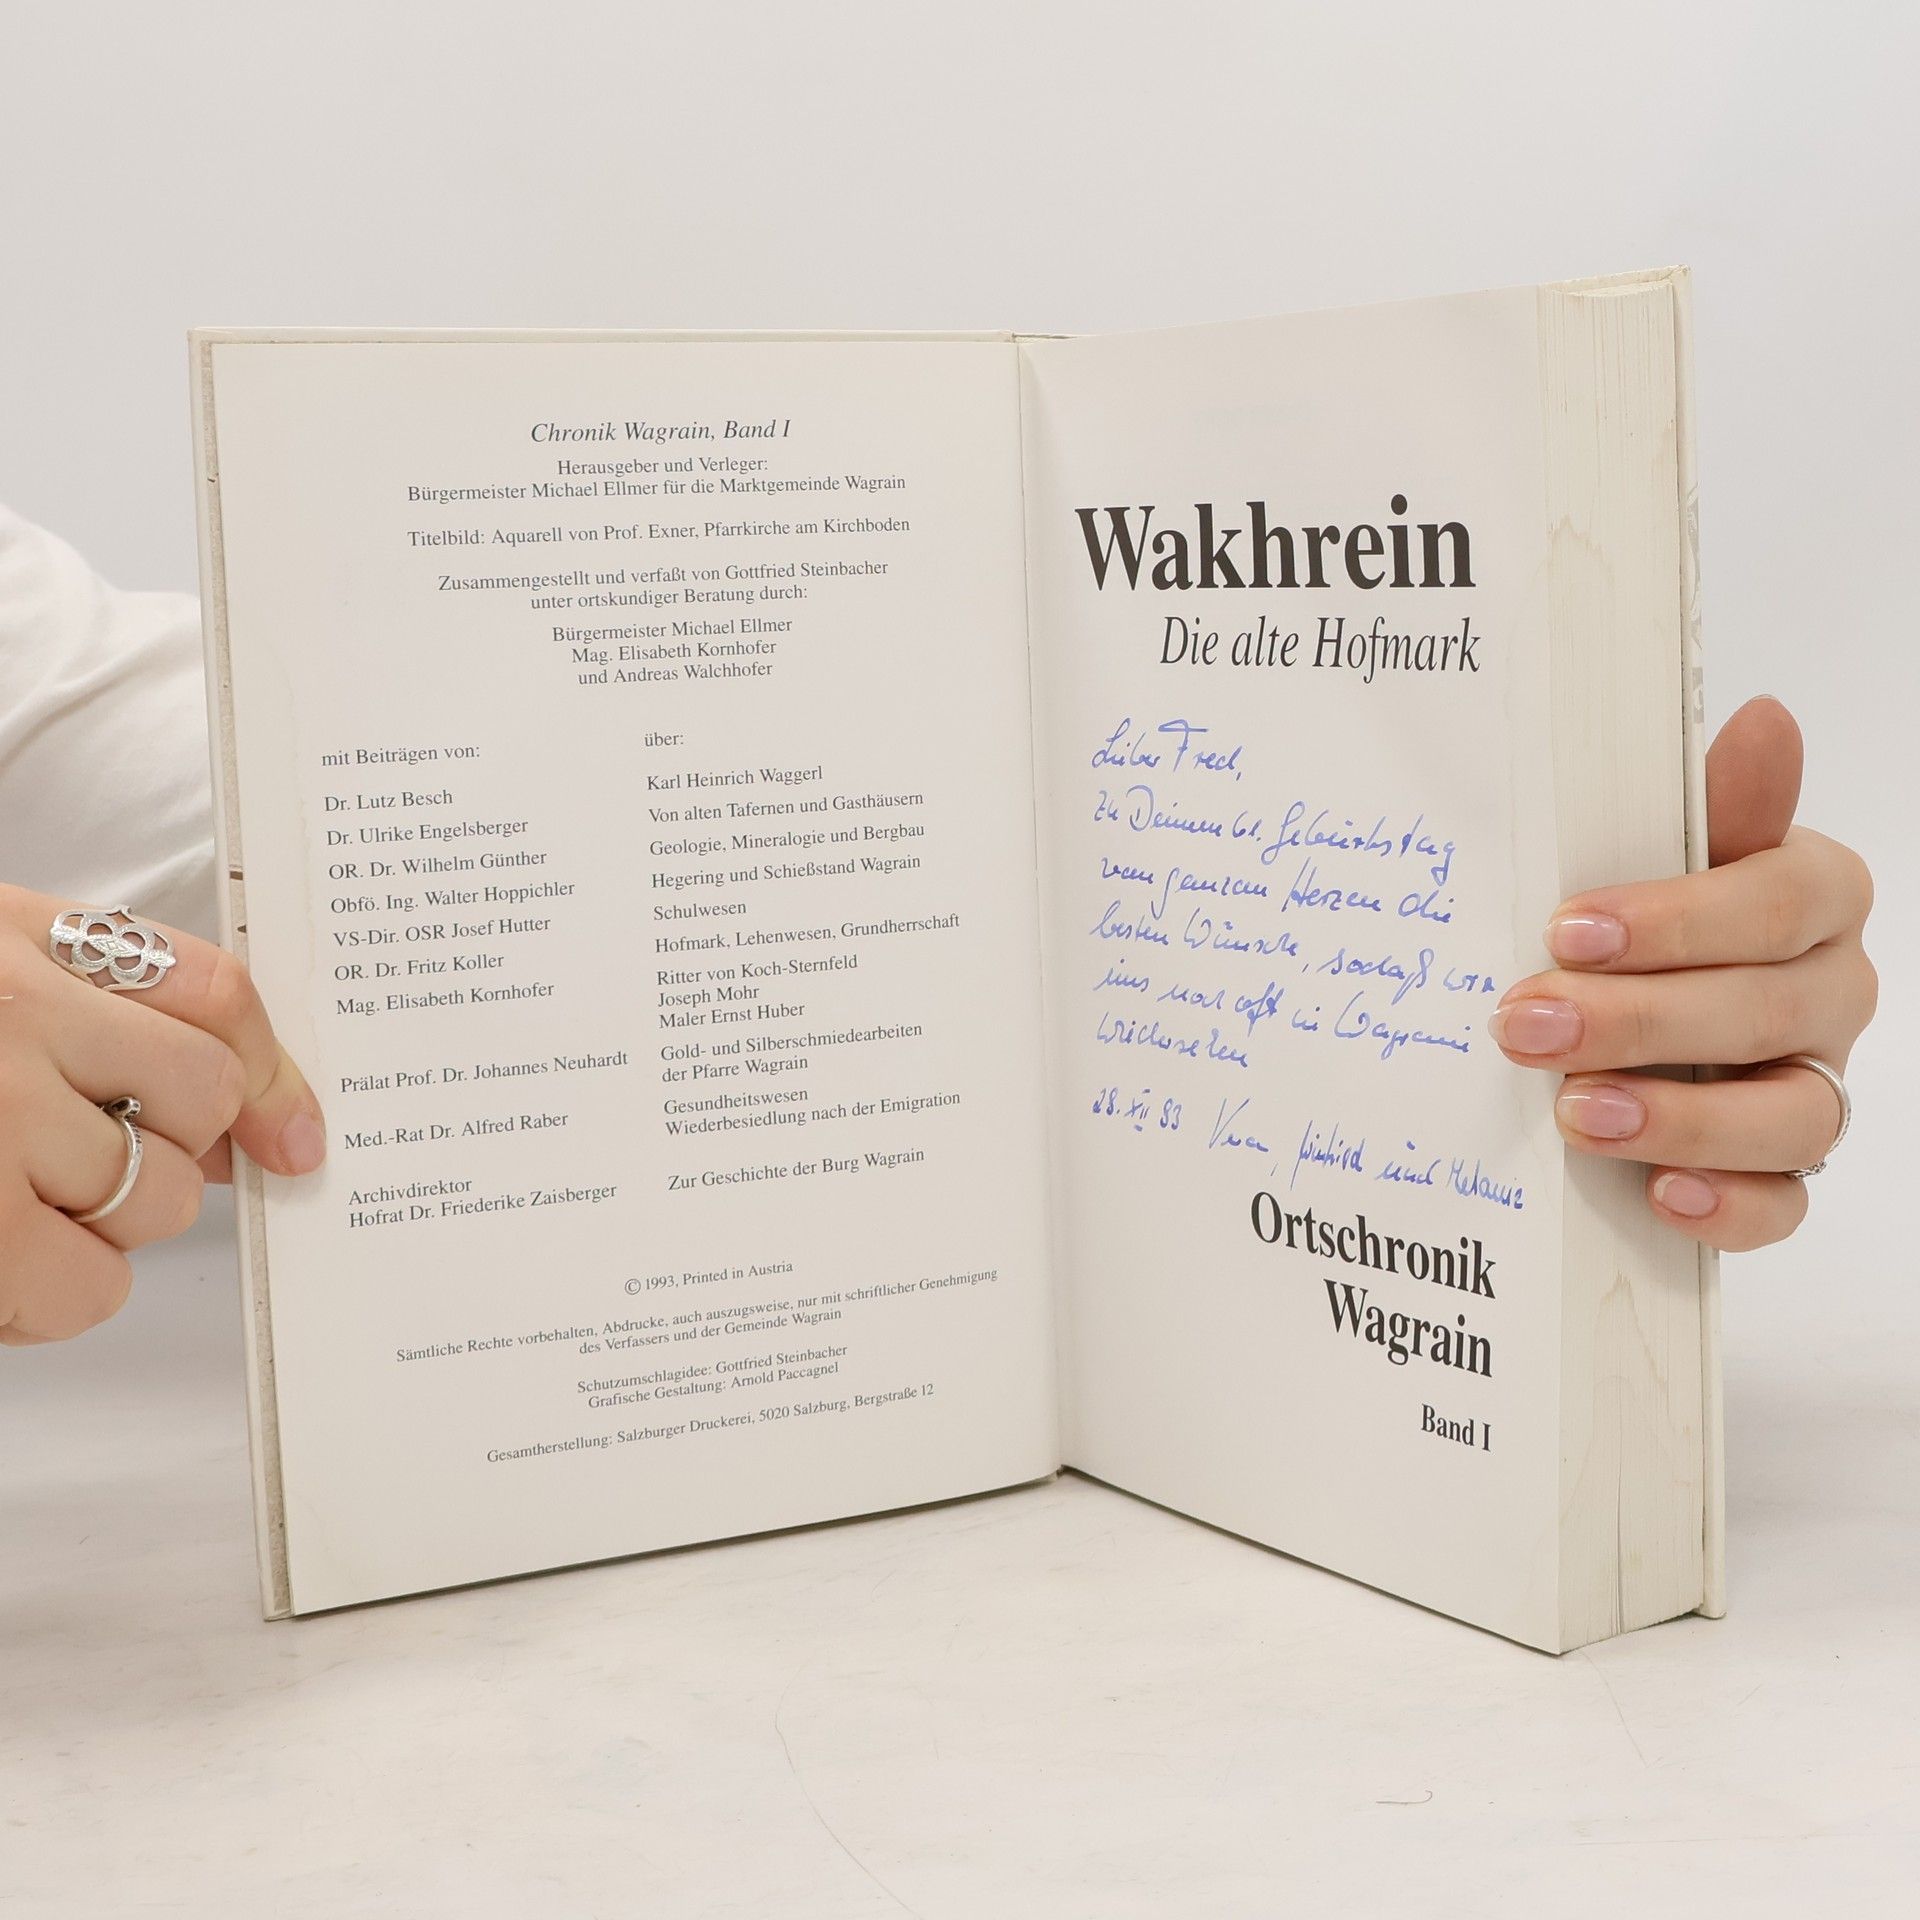 Chronik Wagrain, Band I
Herausgeber und Verleger:
Bürgermeister Michael Ellmer für die Marktgemeinde Wagrain
Titelbild: Aquarell von Prof. Exner, Pfarrkirche am Kirchboden
Zusammengestellt und verfaßt von Gottfried Steinbacher
unter ortskundiger Beratung durch:
Bürgermeister Michael Ellmer
Mag. Elisabeth Kornhofer
und Andreas Walchhofer
mit Beiträgen von:
über:
Dr. Lutz Besch
Karl Heinrich Waggerl
Dr. Ulrike Engelsberger
Von alten Tafernen und Gasthäusern
OR. Dr. Wilhelm Günther
Geologie, Mineralogie und Bergbau
Obfö. Ing. Walter Hoppichler
Hegering und Schießstand Wagrain
VS-Dir. OSR Josef Hutter
Schulwesen
OR. Dr. Fritz Koller
Hofmark, Lehenwesen, Grundherrschaft
Mag. Elisabeth Kornhofer
Ritter von Koch-Sternfeld
Joseph Mohr
Maler Ernst Huber
Prälat Prof. Dr. Johannes Neuhardt
Gold- und Silberschmiedearbeiten
der Pfarre Wagrain
Med.-Rat Dr. Alfred Raber
Gesundheitswesen
Wiederbesiedlung nach der Emigration
Archivdirektor
Hofrat Dr. Friederike Zaisberger
Zur Geschichte der Burg Wagrain
© 1993, Printed in Austria
Sämtliche Rechte vorbehalten, Abdrucke, auch auszugsweise, nur mit schriftlicher Genehmigung
des Verfassers und der Gemeinde Wagrain
Schutzumschlagidee: Gottfried Steinbacher
Grafische Gestaltung: Arnold Paccagnel
Gesamtherstellung: Salzburger Druckerei, 5020 Salzburg, Bergstraße 12
Wakhrein
Die alte Hofmark
Lieber Fred,
zu Deinem 61. Geburtstag
von ganzem Herzen die
besten Wünsche, sodaß wir
uns noch oft in Wagrain
wiedersehen
28. XII 93 Vera, Winfried und Melanie
Ortschronik
Wagrain
Band I